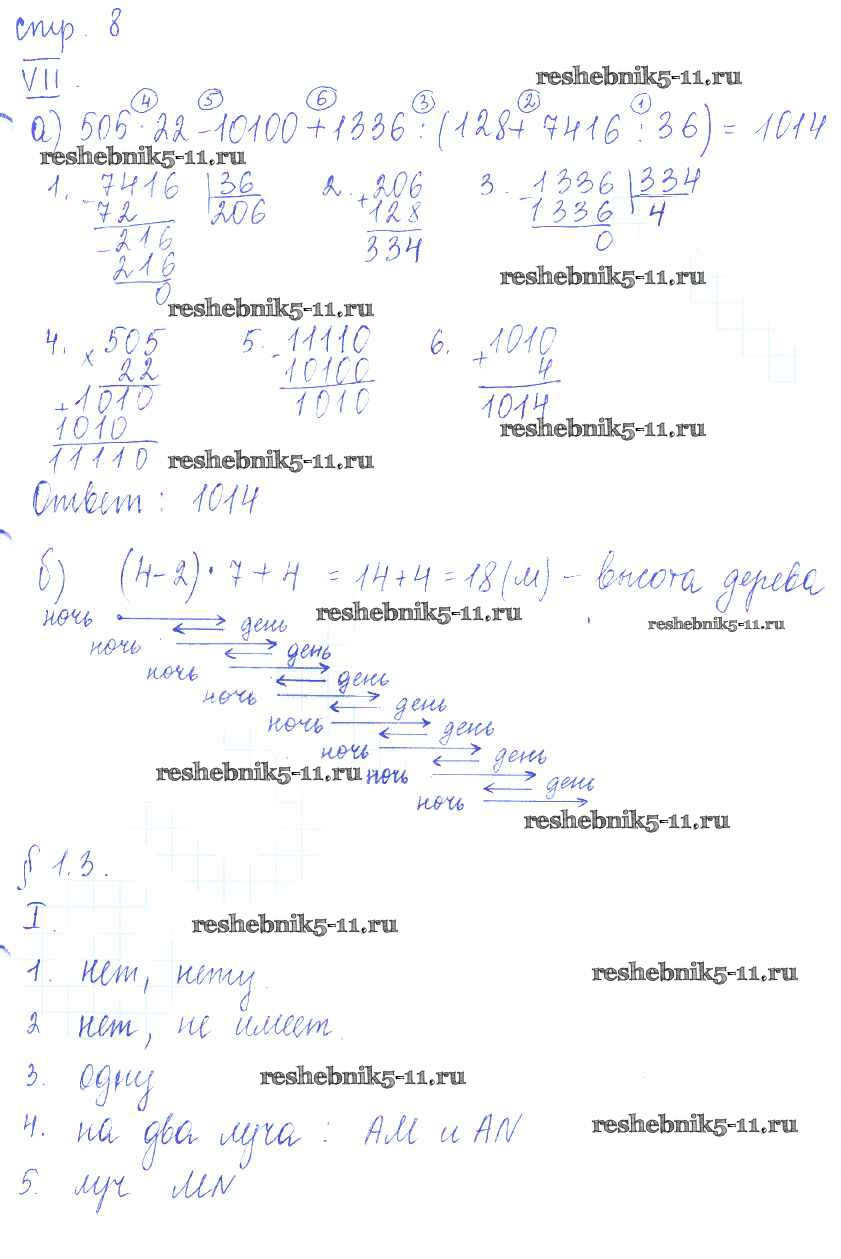 стр. 8
VII.
reshebnik5-11.ru
④ ⑤ ⑥ ③ ② ①
а) 505 · 22 - 10100 + 1336 : (128 + 7416 : 36) = 1014
reshebnik5-11.ru
1. - 7416 | 36
72 206
- 216
216
0
2. + 206
128
334
3. - 1336 | 334
1336 4
0
reshebnik5-11.ru
reshebnik5-11.ru
4. x 505
22
+ 1010
1010
11110
5. - 11110
10100
1010
6. + 1010
4
1014
reshebnik5-11.ru
reshebnik5-11.ru
Ответ: 1014
б) (4-2) · 7 + 4 = 14 + 4 = 18 (м) - высота дерева
reshebnik5-11.ru
reshebnik5-11.ru
ночь день
ночь день
ночь день
ночь день
ночь день
ночь день
ночь день
ночь
reshebnik5-11.ru
reshebnik5-11.ru
§ 1.3.
I.
reshebnik5-11.ru
1. нет, нету.
reshebnik5-11.ru
2 нет, не имеет.
3. одну
reshebnik5-11.ru
4. на два луча: AM и AN
reshebnik5-11.ru
5. луч MN